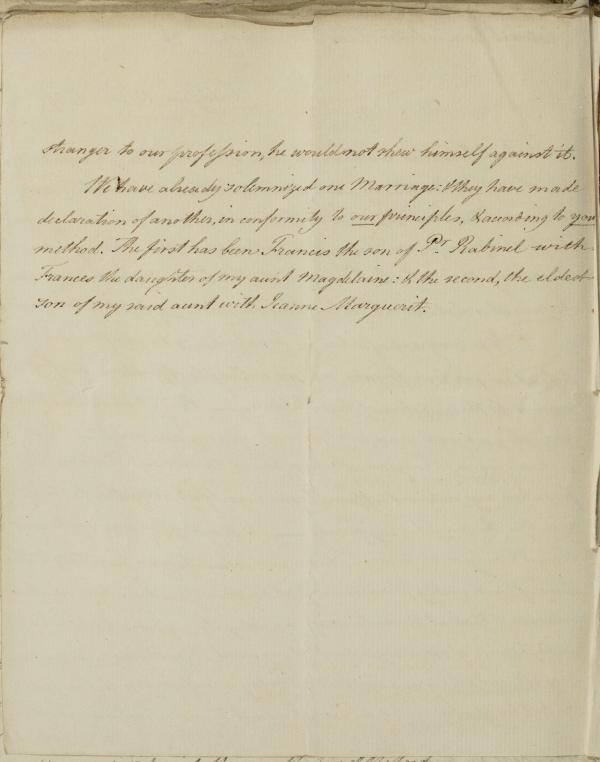 stranger to our profession, he would not shew himself against it.
We have already solemnized one Marriage: & they have made
declaration of another, in conformity to our principles, & according to your
method. The first has been Francis the son of Pr. Rabinel with
Frances the daughter of my aunt Magdelaine: & the second, the eldest
son of my said aunt with Jeanne Marguerit.